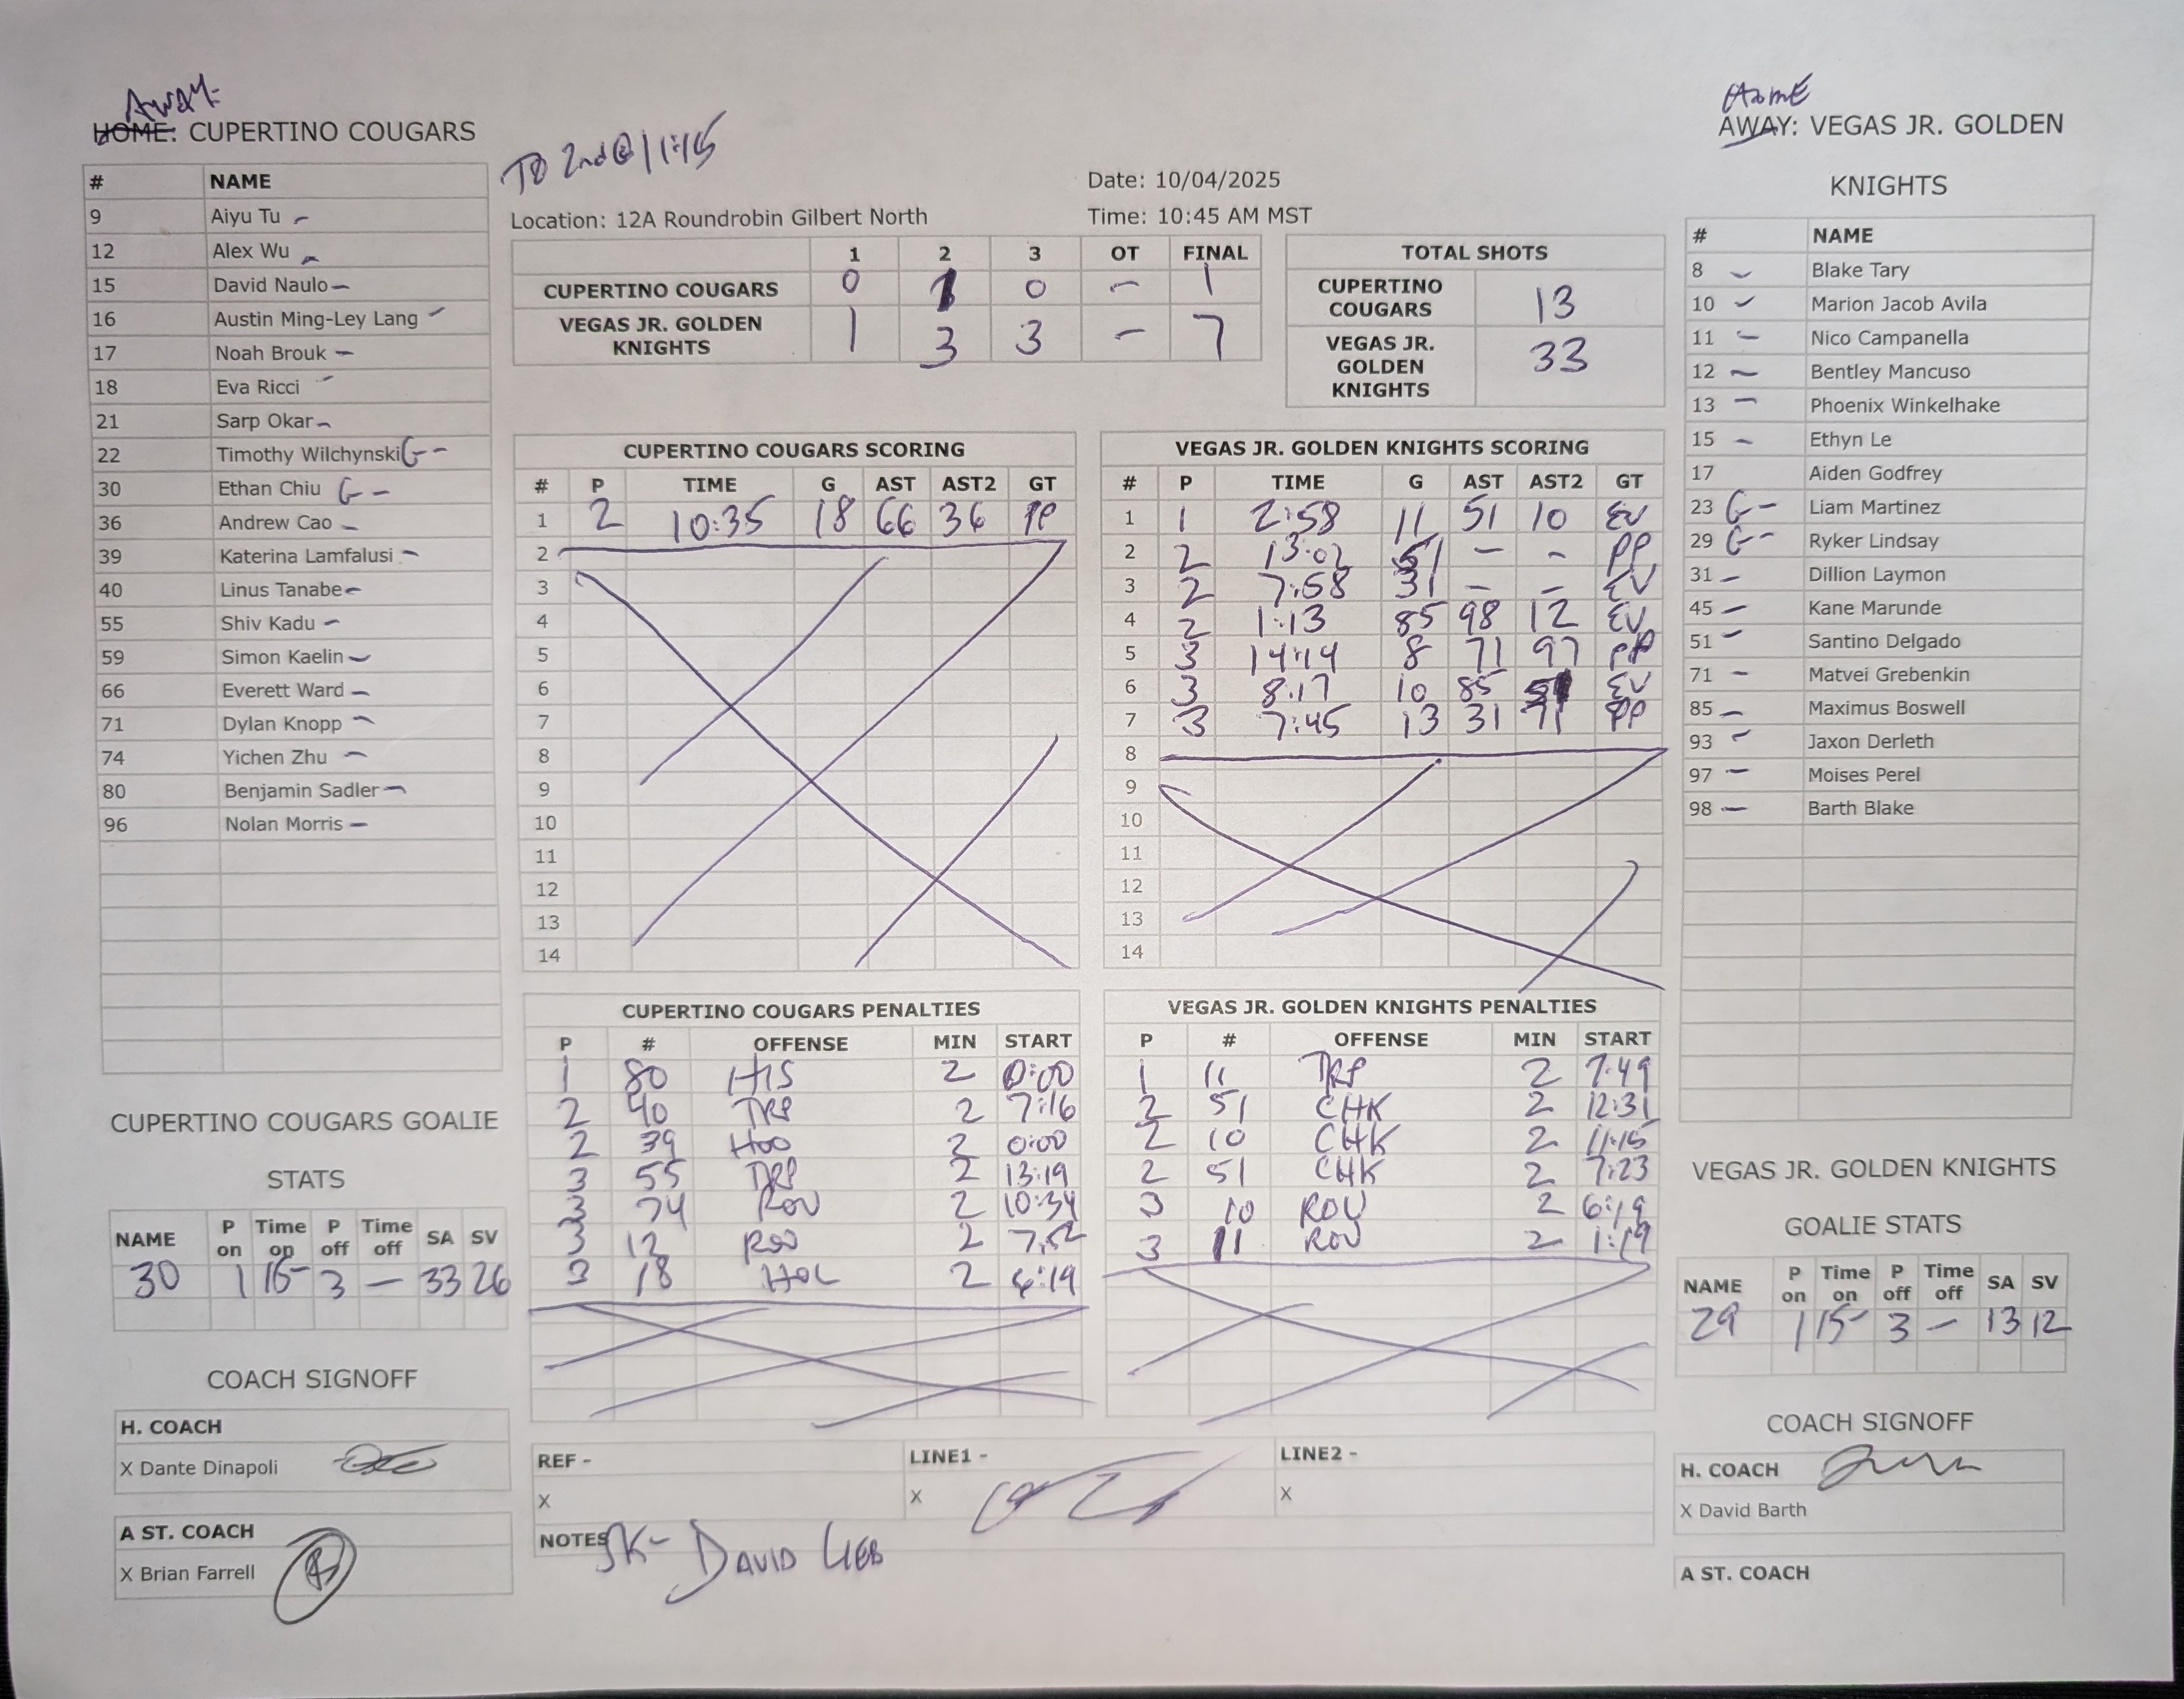 Away
HOME: CUPERTINO COUGARS
Home
AWAY: VEGAS JR. GOLDEN
KNIGHTS
TO 2nd @ 11:15
Date: 10/04/2025
Location: 12A Roundrobin Gilbert North
Time: 10:45 AM MST
# NAME
9 Aiyu Tu -
12 Alex Wu -
15 David Naulo -
16 Austin Ming-Ley Lang -
17 Noah Brouk -
18 Eva Ricci -
21 Sarp Okar -
22 Timothy Wilchynski G -
30 Ethan Chiu G -
36 Andrew Cao -
39 Katerina Lamfalusi -
40 Linus Tanabe -
55 Shiv Kadu -
59 Simon Kaelin -
66 Everett Ward -
71 Dylan Knopp -
74 Yichen Zhu -
80 Benjamin Sadler -
96 Nolan Morris -
1 2 3 OT FINAL
CUPERTINO COUGARS 0 1 0 - 1
VEGAS JR. GOLDEN
KNIGHTS 1 3 3 - 7
TOTAL SHOTS
CUPERTINO
COUGARS 13
VEGAS JR.
GOLDEN
KNIGHTS 33
# NAME
8 - Blake Tary
10 - Marion Jacob Avila
11 - Nico Campanella
12 - Bentley Mancuso
13 - Phoenix Winkelhake
15 - Ethyn Le
17 Aiden Godfrey
23 G - Liam Martinez
29 G - Ryker Lindsay
31 - Dillion Laymon
45 - Kane Marunde
51 - Santino Delgado
71 - Matvei Grebenkin
85 - Maximus Boswell
93 - Jaxon Derleth
97 - Moises Perel
98 - Barth Blake
CUPERTINO COUGARS SCORING
# P TIME G AST AST2 GT
1 2 10:35 18 66 36 PP
2
3
4
5
6
7
8
9
10
11
12
13
14
VEGAS JR. GOLDEN KNIGHTS SCORING
# P TIME G AST AST2 GT
1 1 2:58 11 51 10 EV
2 2 13:02 51 - - PP
3 2 7:58 31 - - EV
4 2 1:13 85 98 12 EV
5 3 14:14 8 71 97 PP
6 3 8:17 10 85 EV
7 3 7:45 13 31 71 PP
8
9
10
11
12
13
14
CUPERTINO COUGARS PENALTIES
P # OFFENSE MIN START
1 80 HIS 2 0:00
2 40 TRP 2 7:16
2 39 HOO 2 0:00
3 55 TRP 2 13:19
3 74 ROU 2 10:34
3 12 ROU 2 7:52
3 18 HOL 2 6:19
VEGAS JR. GOLDEN KNIGHTS PENALTIES
P # OFFENSE MIN START
1 11 TRP 2 7:49
2 51 CHK 2 12:31
2 10 CHK 2 11:15
2 51 CHK 2 7:23
3 10 ROU 2 6:19
3 11 ROU 2 1:19
CUPERTINO COUGARS GOALIE
STATS
NAME P on Time on P off Time off SA SV
30 1 15- 3 - 33 26
COACH SIGNOFF
H. COACH
X Dante Dinapoli
A ST. COACH
X Brian Farrell
REF - LINE1 - LINE2 -
X X X
NOTES SK- DAVID LIEB
VEGAS JR. GOLDEN KNIGHTS
GOALIE STATS
NAME P on Time on P off Time off SA SV
29 1 15- 3 - 13 12
COACH SIGNOFF
H. COACH
X David Barth
A ST. COACH